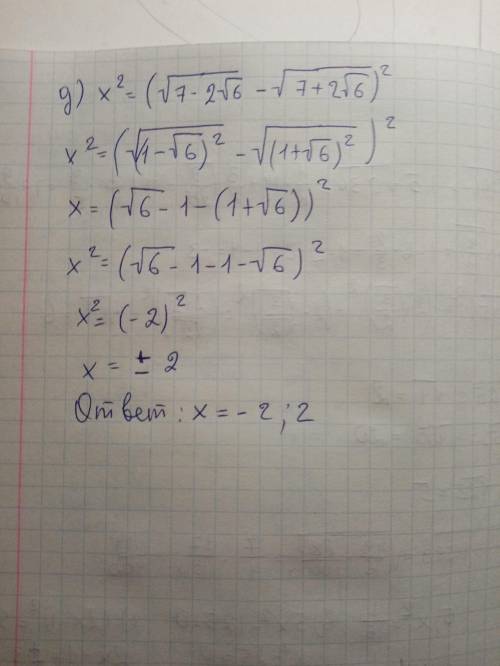 д) x² = (√(7 - 2√6) - √(7 + 2√6))²
x² = (√((1 - √6)²) - √((1 + √6)²))²
x = (√6 - 1 - (1 + √6))²
x² = (√6 - 1 - 1 - √6)²
x² = (-2)²
x = ± 2
Ответ: x = -2; 2